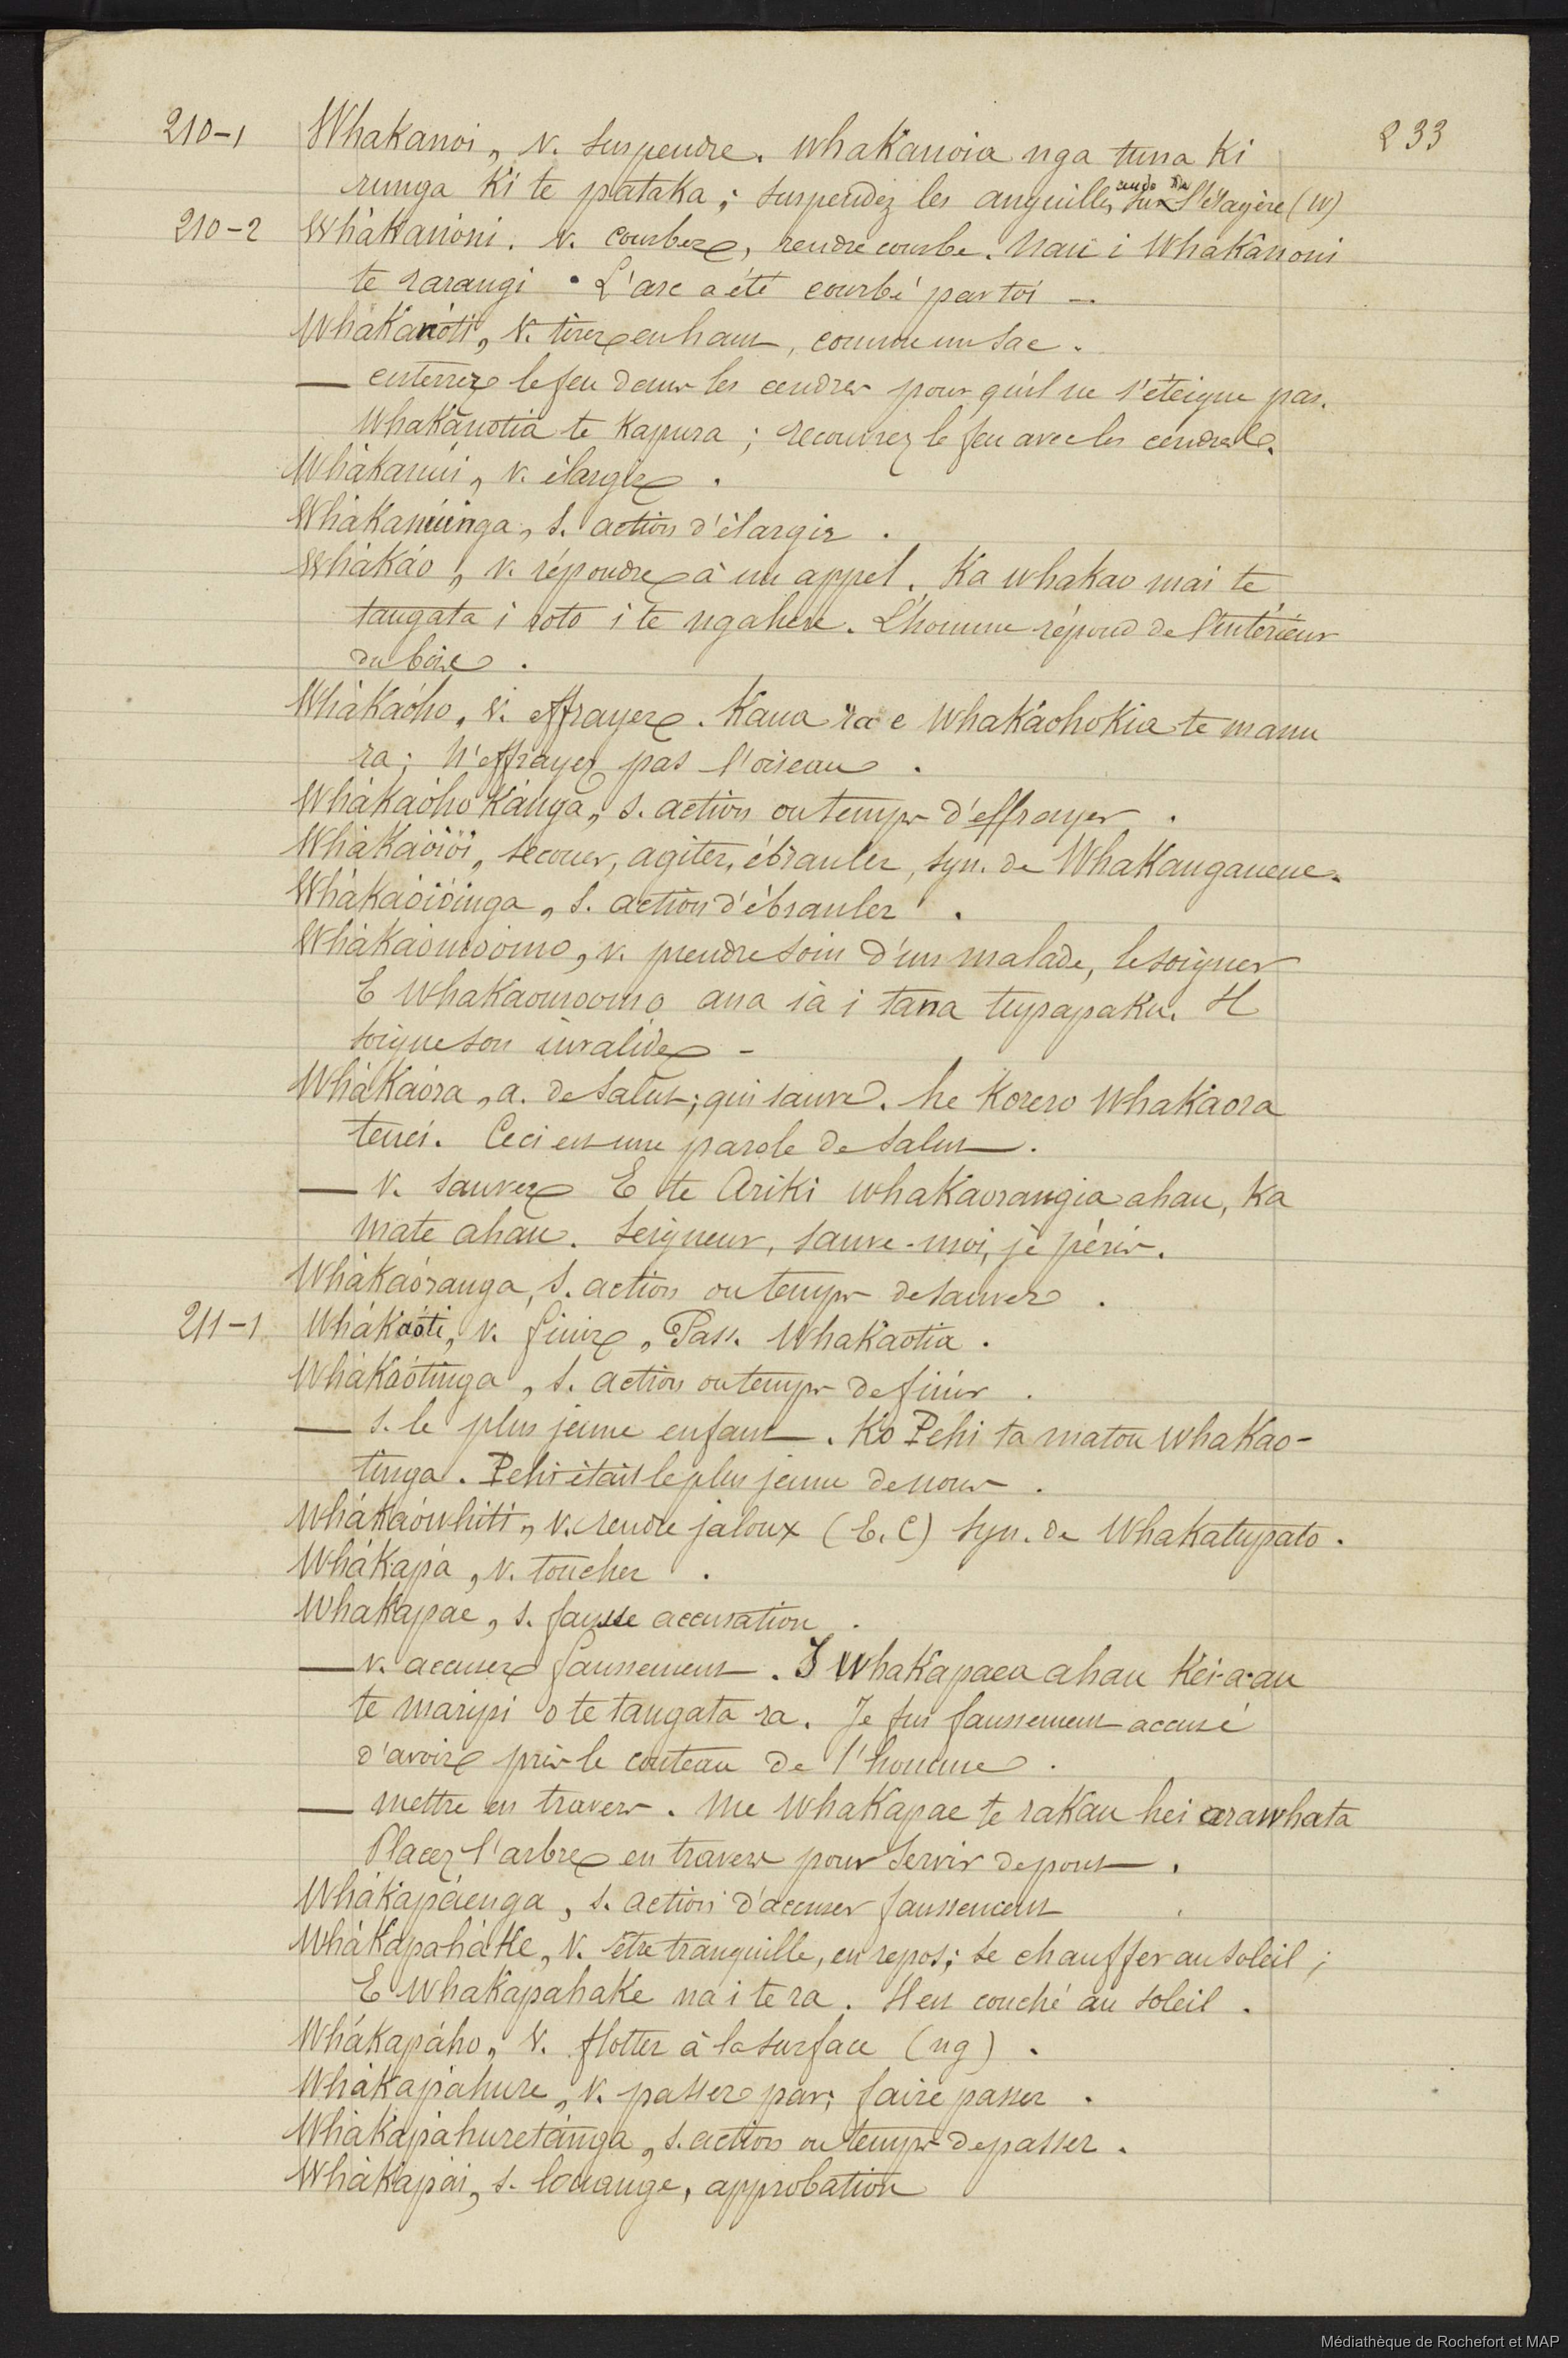 233
210-1 Whakanoi, v. suspendre. whakanoia nga tuna ki
runga ki te pataka; suspendez les anguilles sur l'étagère (W)
210-2 Whákanóni. v. courber, rendre courbe. Nau i Whakánoni
te rarangi. L'arc a été courbé par toi —.
Whakanóti, v. tirer en haut, comme un sac.
— enterrer le feu dans les cendres pour qu'il ne s'éteigne pas.
Whakănotia te kapura; recouvrez le feu avec les cendres.
Whákanúi, v. élargir.
Whákanúinga, s. action d'élargir.
Whákáo, v. répondre à un appel. Ka whakao mai te
tangata i roto i te ngahere. L'homme répond de l'intérieur
du bois.
Whákaóho, v. effrayer. Kaua ra e whakáohokia te manu
ra; N'effrayez pas l'oiseau.
Whákaóhokánga, s. action ou temps d'effrayer.
Whákaóiói, secouer, agiter, ébranler, syn. de Whakangaueue.
Whákaóióinga, s. action d'ébranler.
Whákaómoómo, v. prendre soin d'un malade, le soigner
E whakaomoomo ana ia i tana tupapaku. Il
soigne son invalide -
Whákaóra, a. de salut; qui sauve. he korero whakaora
tenei. Ceci est une parole de salut.
— v. sauver E te Ariki whakaorangia ahau, ka
mate ahau. Seigneur, sauve-moi, je péris.
Whákaóranga, s. action ou temps de sauver.
211-1 Whákaóti, v. finir, Pass. Whakaotia.
Whákaótinga, s. action ou temps de finir.
— s. le plus jeune enfant. Ko Pehi ta matou whakao-
tinga. Pehi était le plus jeune de nous.
Whákaówhiti, v. rendre jaloux (E.C) syn. de Whakatupato.
Whákapá, v. toucher.
Whakapae, s. fausse accusation.
— v. accuser faussement. I whakapaea ahau kei-a-au
te maripi o te tangata ra. Je fus faussement accusé
d'avoir pris le couteau de l'homme.
— mettre en travers. Me whakapae te rakau hei arawhata
Placez l'arbre en travers pour servir de pont.
Whákapáenga, s. action d'accuser faussement.
Whákapaháke, v. être tranquille, en repos; se chauffer au soleil;
E whakapahake na i te ra. Il est couché au soleil.
Whákapáho, v. flotter à la surface (ng).
Whákapáhure, v. passer par; faire passer.
Whákapáhuretánga, s. action ou temps de passer.
Whákapái, s. louange, approbation
Médiathèque de Rochefort et MAP